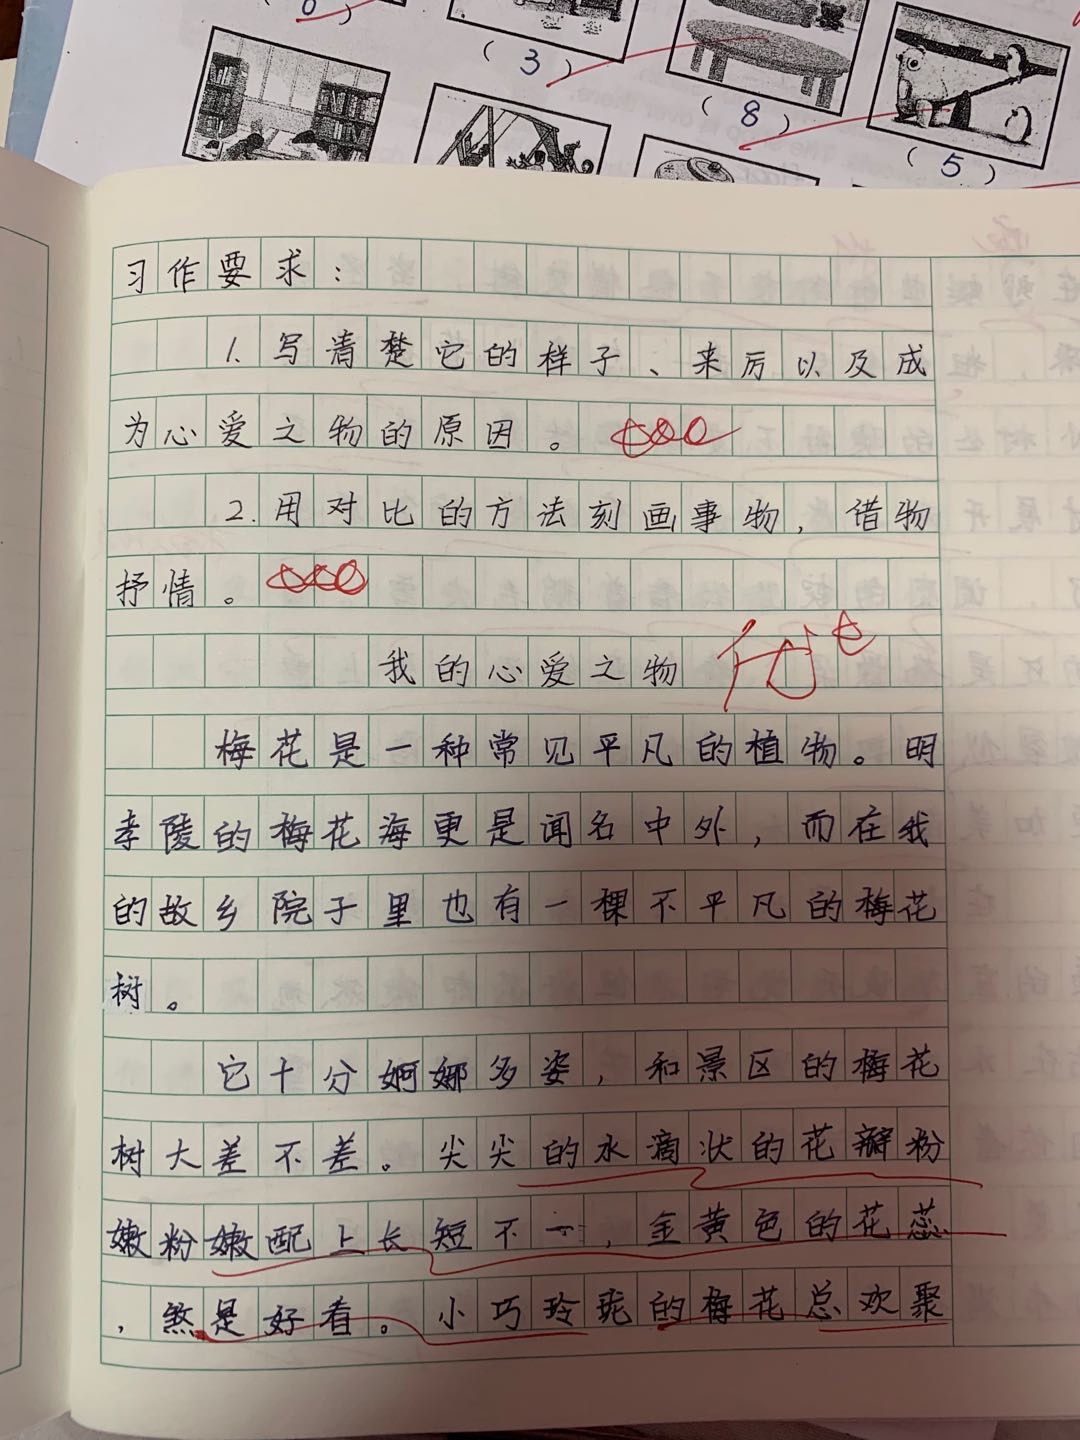 (3)
(8)
(5)
习作要求：
1.写清楚它的样子、来历以及成
为心爱之物的原因。
2.用对比的方法刻画事物，借物
抒情。
我的心爱之物 优
梅花是一种常见平凡的植物。明
孝陵的梅花海更是闻名中外，而在我
的故乡院子里也有一棵不平凡的梅花
树。
它十分婀娜多姿，和景区的梅花
树大差不差。尖尖的水滴状的花瓣粉
嫩粉嫩配上长短不一，金黄色的花蕊
，煞是好看。小巧玲珑的梅花总欢聚